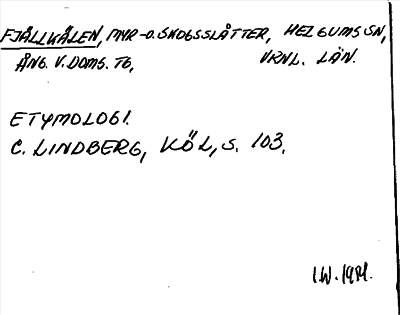 FJÄLLKÄLEN, MYR- O. SKOGSSLÅTTER, HELGUMS SN,
ÅNG. V. DOMS. TG, VRNL. LÄN.
ETYMOLOGI.
C. LINDBERG, KÖL, S. 103.
I.W. 1981.